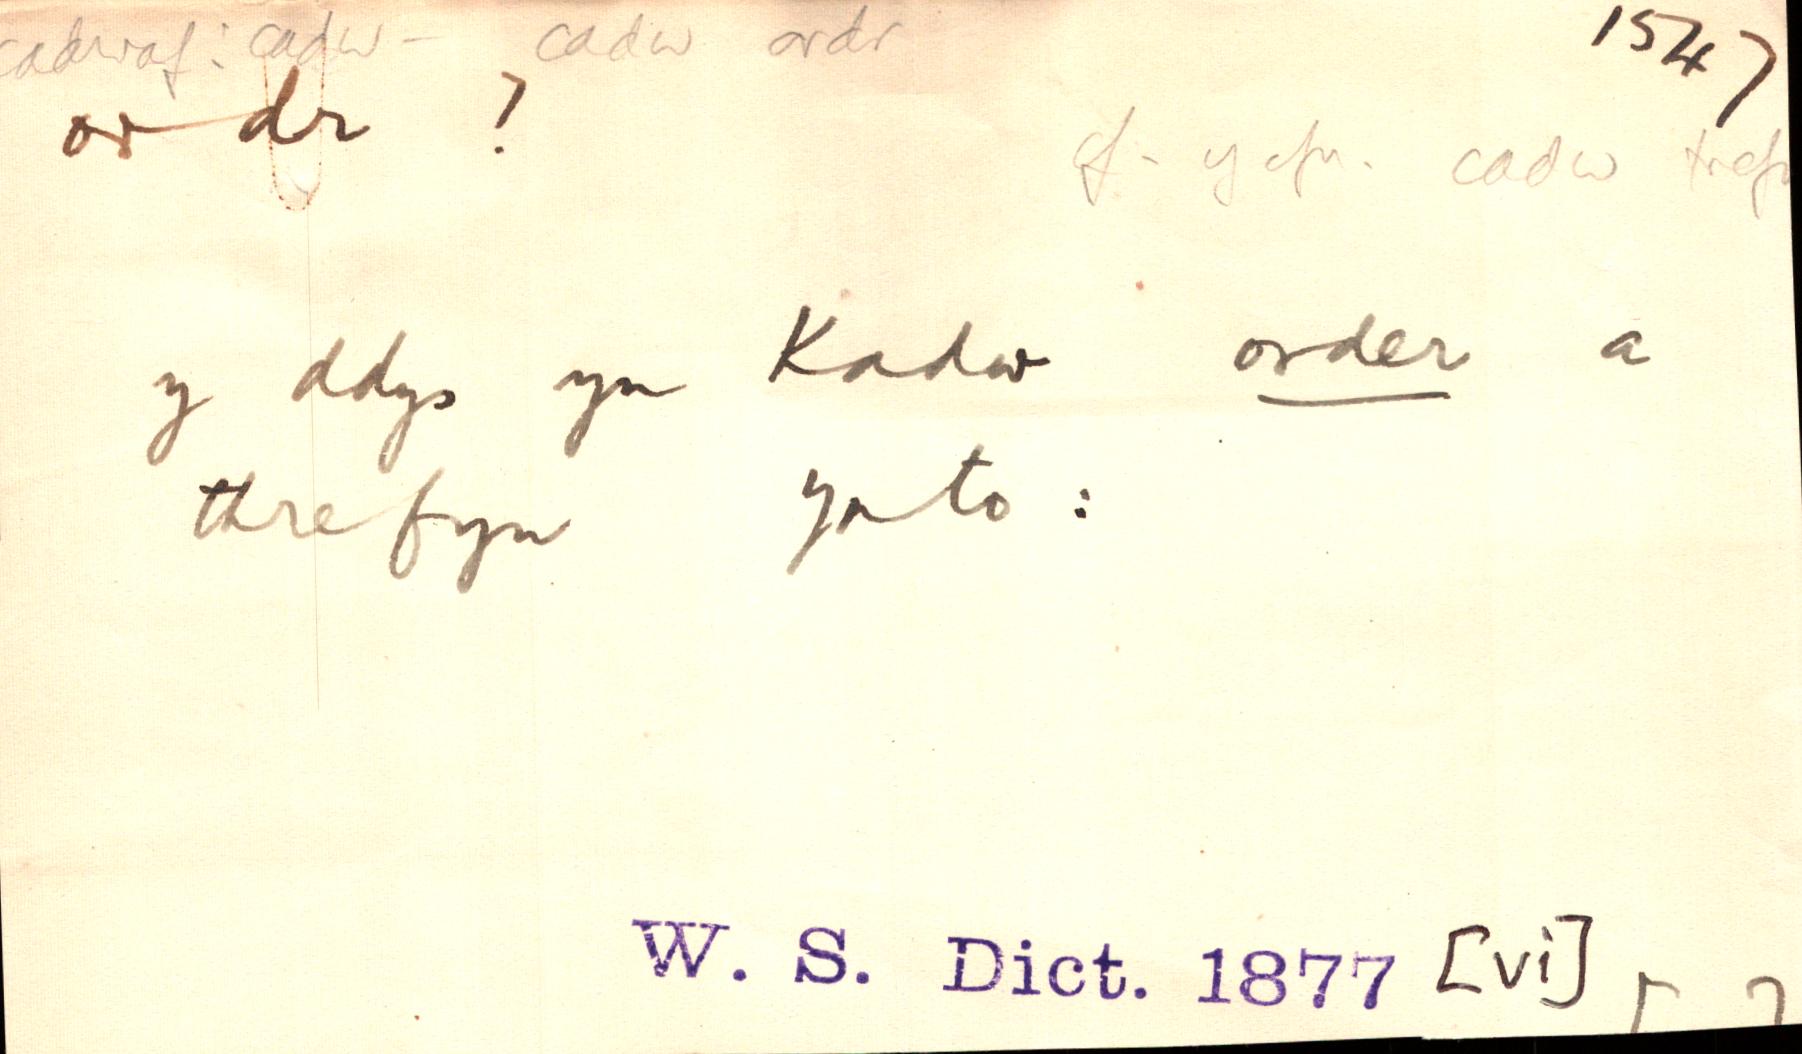 cadwaf: cadw – cadw ordr
1547
ordr ?
cf. y cfn. cadw trefn
y ddys yn Kadw order a
threfyn ynto :
W. S. Dict. 1877 [vi]
[ ]